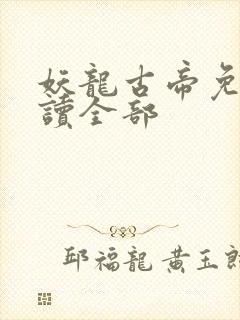 妖龍古帝免
讀全部
邱福龍 黃玉郎